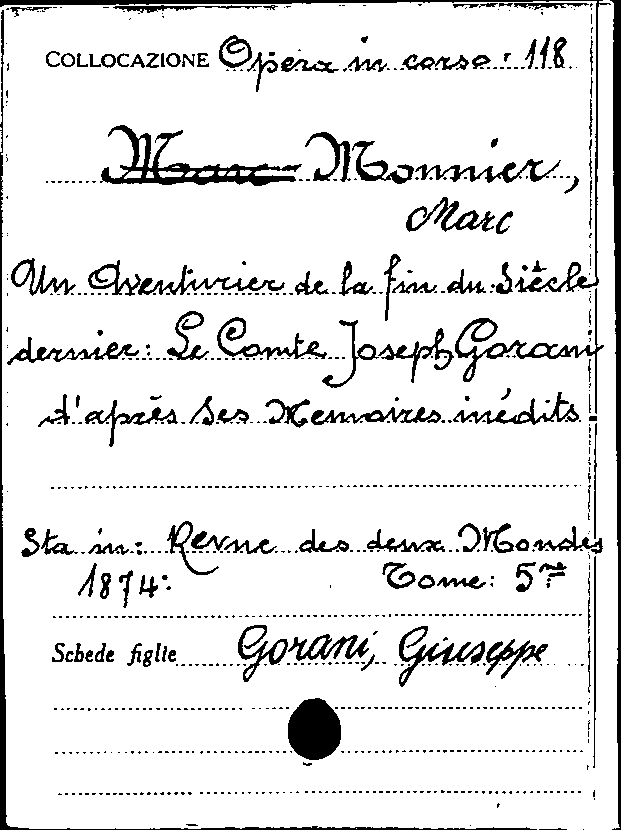 COLLOCAZIONE Opera in corso · 118
Marc Monnier,
Marc
Un Aventurier de la fin du Siècle
dernier: Le Comte Joseph Gorani
d'après ses Memoires inédits.
Sta in: Revue des deux Mondes
1874: Tome: 5me
Schede figlie Gorani, Giuseppe